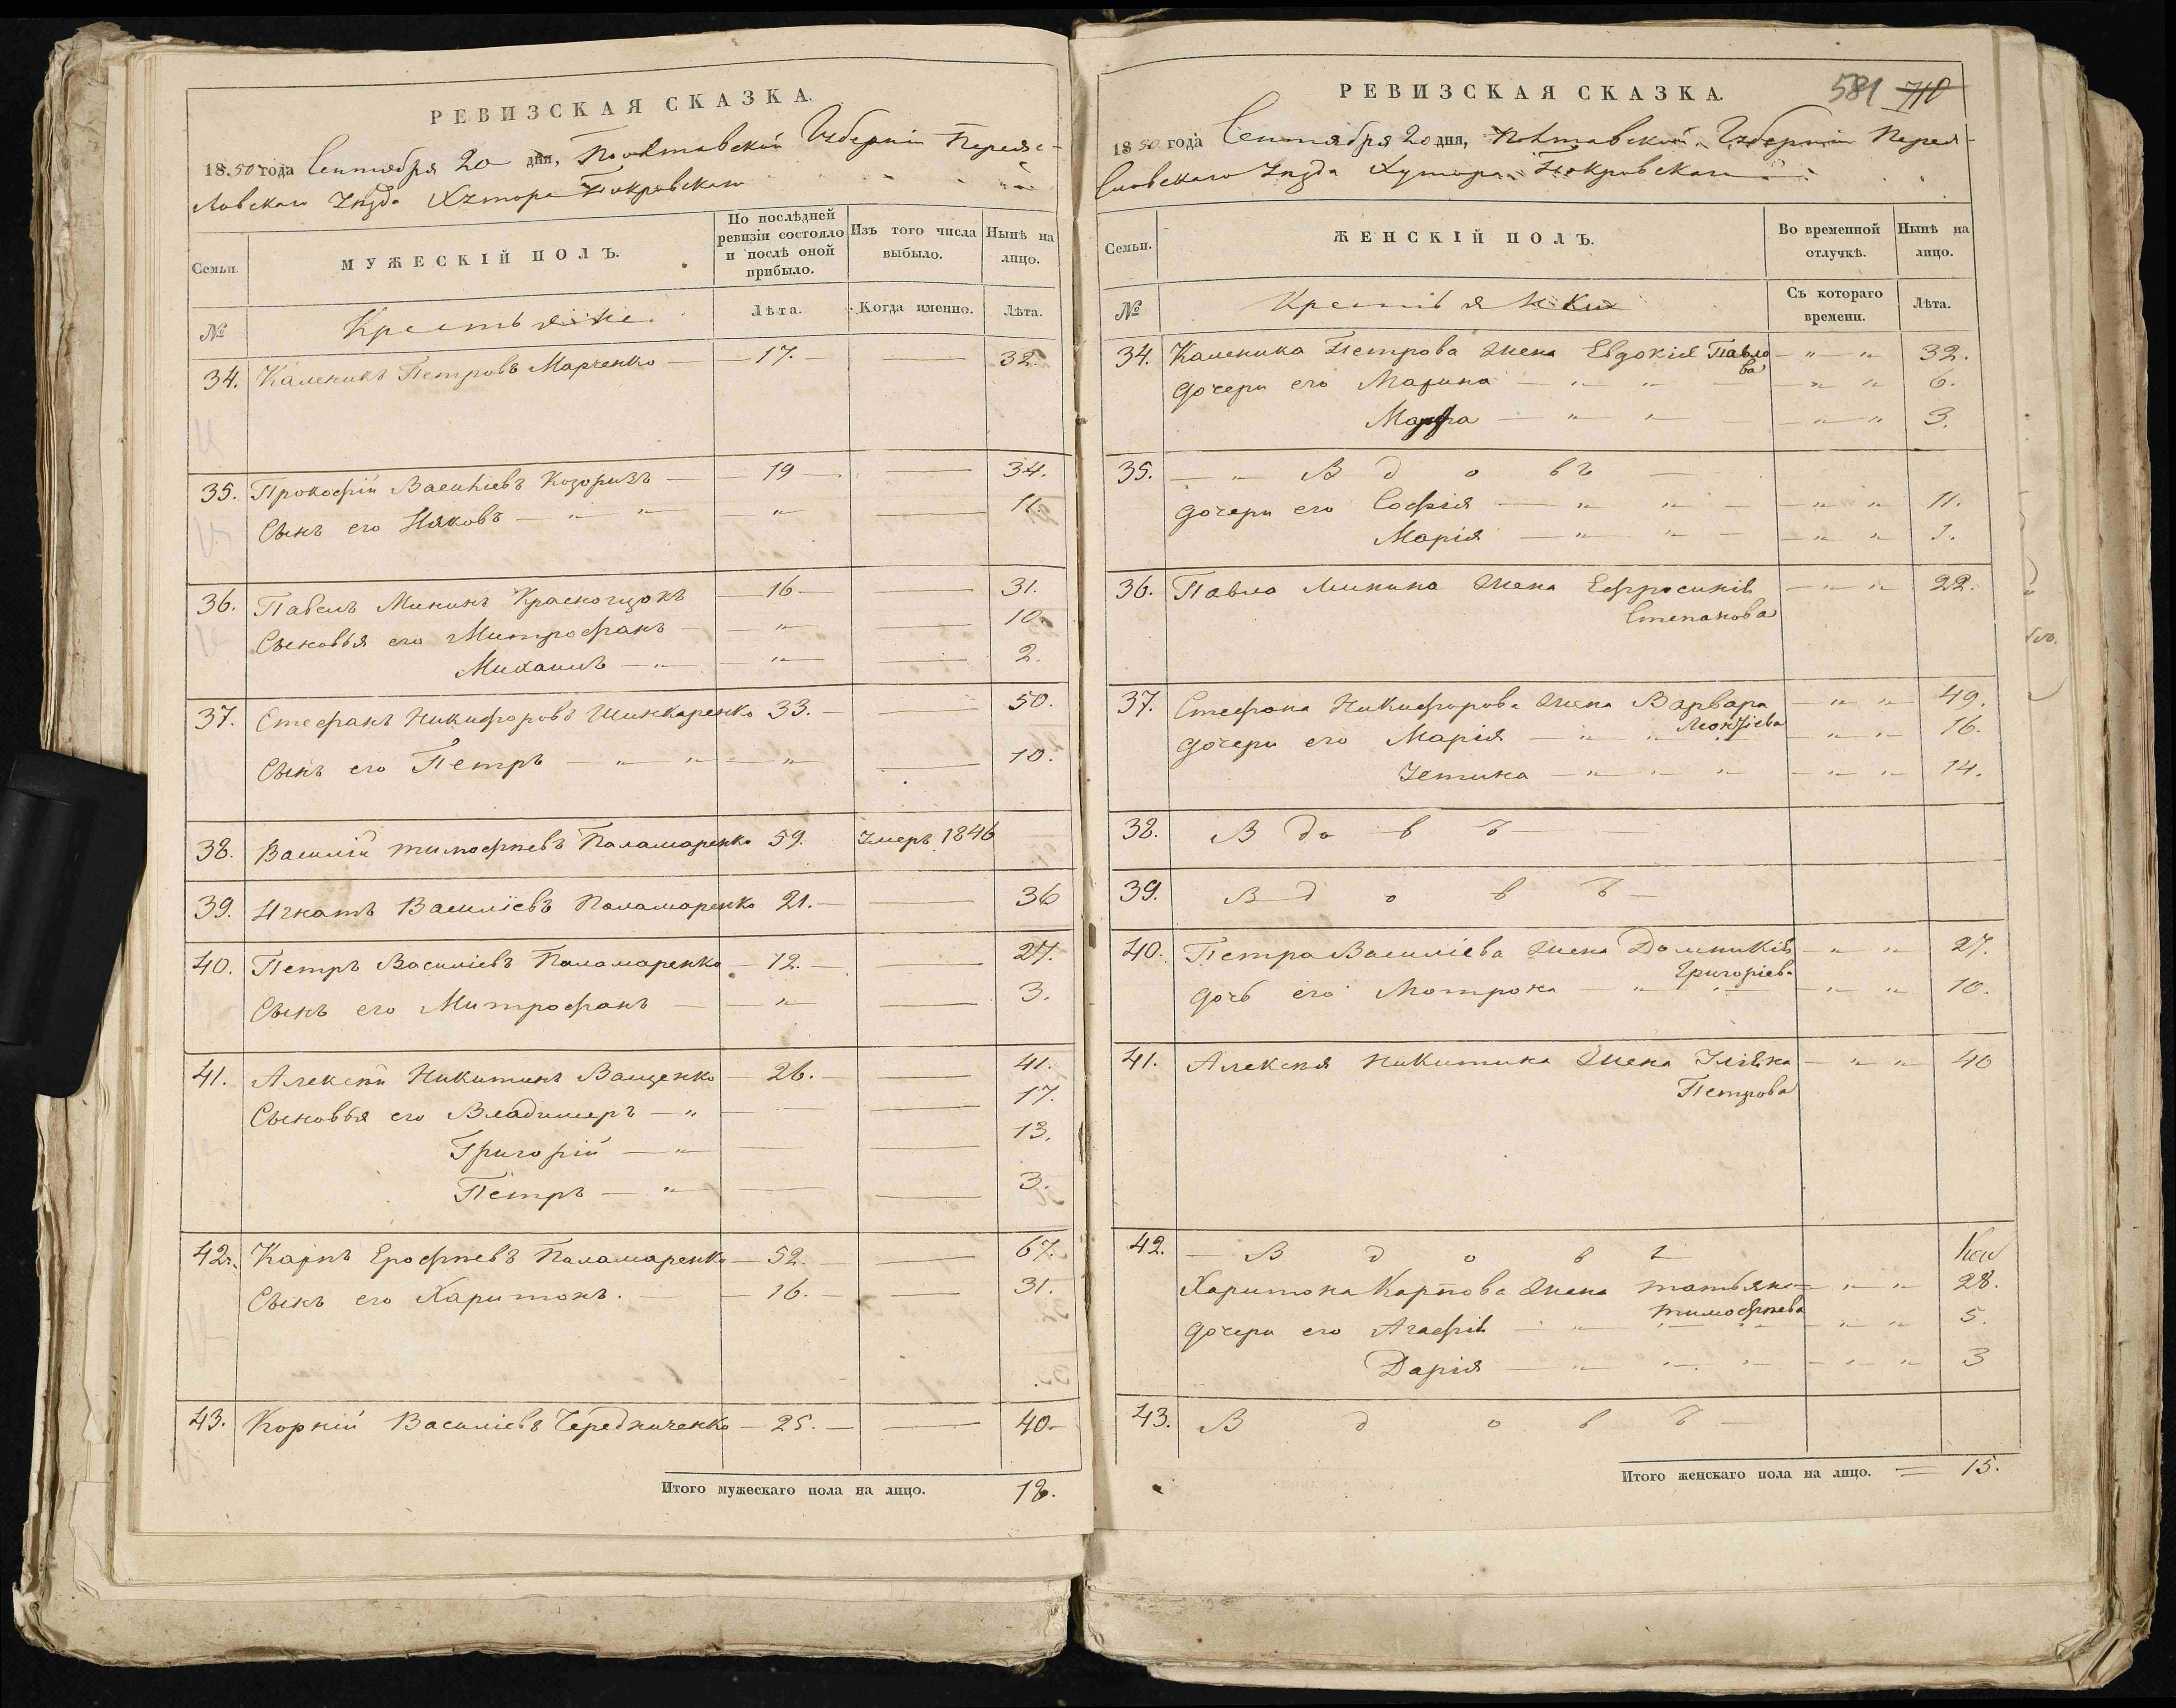 РЕВИЗСКАЯ СКАЗКА.
18.50 года Сентября 20 дня, Полтавской Губерніи Переяс-
лавскаго Уѣзда Хутора Покровскаго
Семьи.
МУЖЕСКІЙ ПОЛЪ.
По послѣдней ревизіи состояло и послѣ оной прибыло.
Изъ того числа выбыло.
Нынѣ на лицо.
№
Крестьяне.
Лѣта.
Когда именно.
Лѣта.
34. Каленикъ Петровъ Марченко — 17. — 32.
35. Прокофій Василіевъ Козоризъ — 19 — 34.
Сынъ его Ияковъ — " — " — " — 11.
36. Павелъ Мининъ Красногцокъ — 16 — 31.
Сыновья его Митрофанъ — " — 10.
Михаилъ — " — " — 2.
37. Стефанъ Никифоровъ Шинкаренко 33. — 50.
Сынъ его Петръ — " — " — " — 10.
38. Василій Тимофѣевъ Паламаренко 59. Умеръ 1846
39. Игнатъ Василіевъ Паламаренко 21. — 36
40. Петръ Василіевъ Паламаренко — 12. — 27.
Сынъ его Митрофанъ — " — 3.
41. Алексѣй Никитинъ Ващенко — 26. — 41.
Сыновья его Владимеръ — " — 17.
Григорій — " — 13.
Петръ — " — 3.
42. Карпъ Ерофѣевъ Паламаренко — 52. — 67.
Сынъ его Харитонъ. — 16. — 31.
43. Корній Василіевъ Чередниченко — 25. — 40.
Итого мужескаго пола на лицо. 18.
581 710
РЕВИЗСКАЯ СКАЗКА.
1850 года Сентября 20 дня, Полтавской Губерніи Перея-
славскаго Уѣзда Хутора Покровскаго
Семьи.
ЖЕНСКІЙ ПОЛЪ.
Во временной отлучкѣ.
Нынѣ на лицо.
№
Крестьянки
Съ котораго времени.
Лѣта.
34. Каленика Петрова жена Евдокія Павлова — " — " 32.
дочери его Марина — " — " — " " 6.
Марфа — " — " — " " 3.
35. — " — Вдовъ —
дочери его Софія — " " — " " 11.
Марія — " " — " " 1.
36. Павла Минина жена Ефросинія — " " 22.
Степанова
37. Стефана Никифорова жена Варвара — " " 49.
Леонтіева
дочери его Марія — " " — " " 16.
Устина — " " " — " " 14.
38. Вдовъ
39. Вдовъ —
40. Петра Василіева жена Домникія — " " 27.
Григоріева
дочь его Мотрона — " " — " " 10.
41. Алексѣя Никитина жена Уліяна — " " 40
Петрова
42. — Вдовъ
Харитона Карпова жена Татьяна — " " 28.
Тимофѣева
дочери его Агафія — " " — " " 5.
Дарія — " " " — " " 3
43. Вдовъ —
Итого женскаго пола на лицо. = 15.